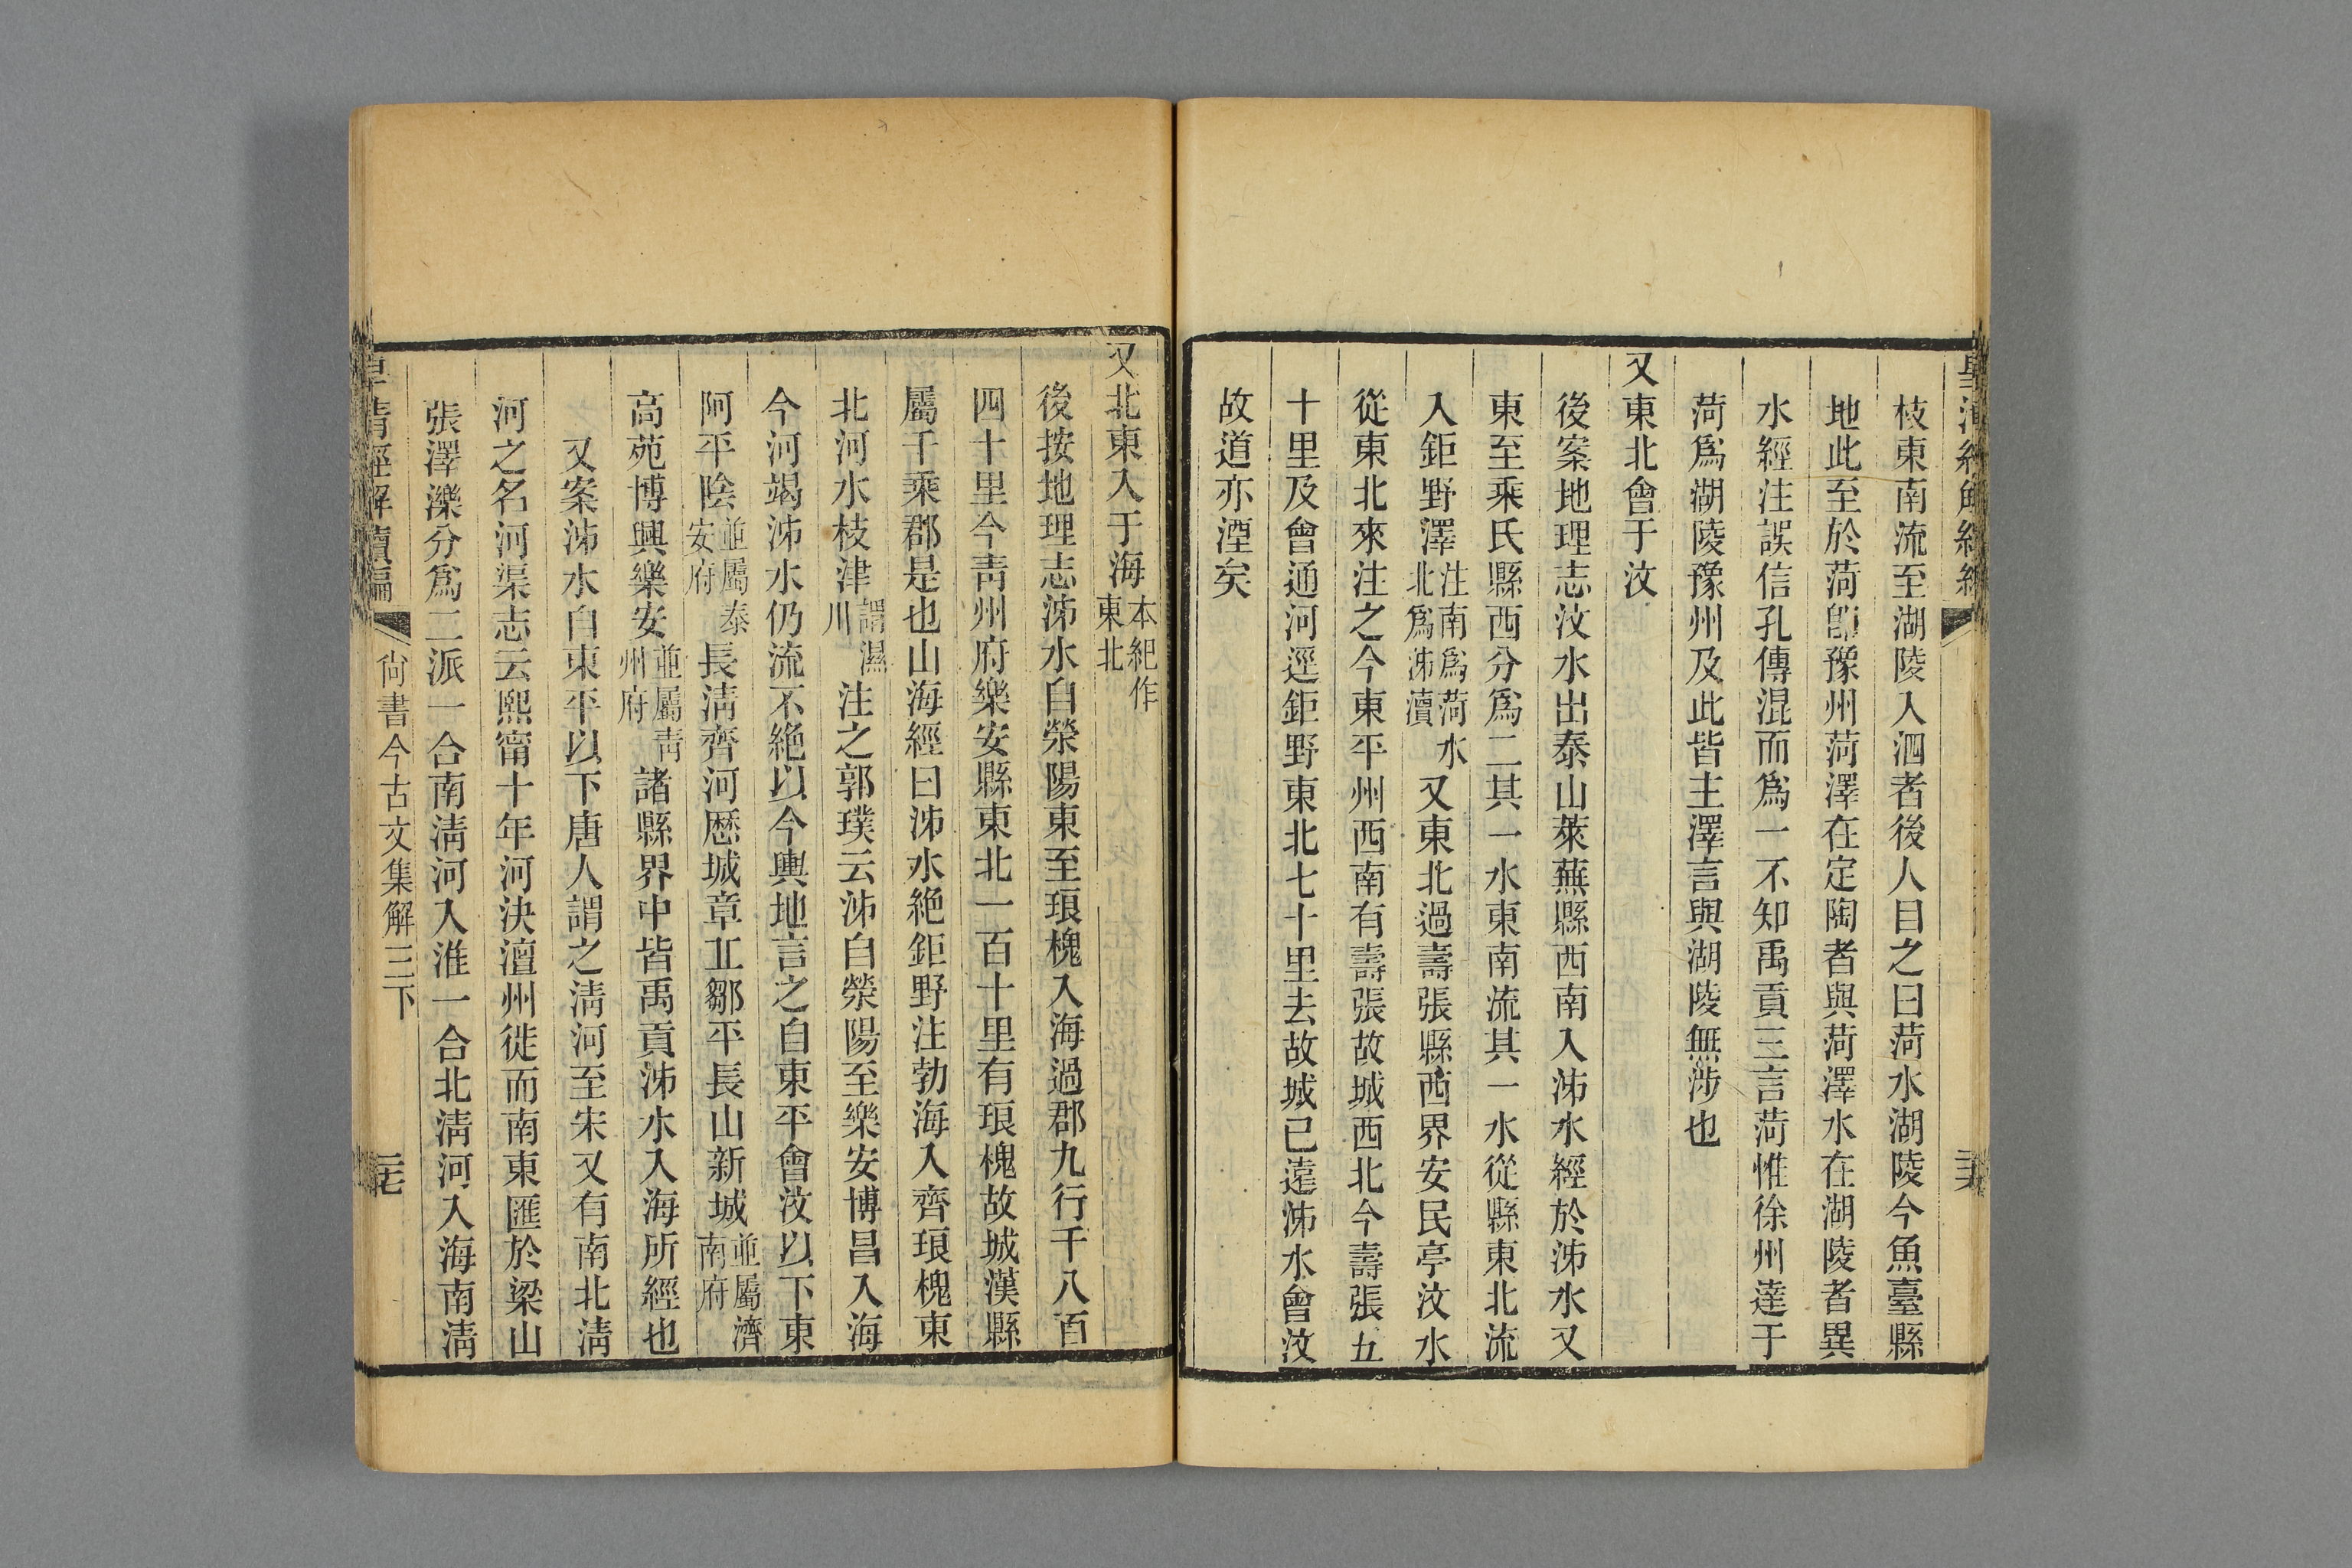 枝東南流至湖陵入泗者後人目之曰菏水湖陵今魚臺縣
地此至於菏卽豫州菏澤在定陶者與菏澤水在湖陵者異
水經注誤信孔傳混而爲一不知禹貢三言菏惟徐州達于
菏爲湖陵豫州及此皆主澤言與湖陵無涉也
又東北會于汶
後案地理志汶水出泰山萊蕪縣西南入泲水經於泲水又
東至乘氏縣西分爲二其一水東南流其一水從縣東北流
入鉅野澤注南爲菏水北爲泲瀆又東北過壽張縣西界安民亭汶水
從東北來注之今東平州西南有壽張故城西北今壽張五
十里及會通河逕鉅野東北七十里去故城已遠泲水會汶
故道亦湮矣
又北東入于海本紀作東北
後按地理志泲水自滎陽東至琅槐入海過郡九行千八百
四十里今靑州府樂安縣東北一百十里有琅槐故城漢縣
屬千乘郡是也山海經曰泲水絶鉅野注勃海入齊琅槐東
北河水枝津謂濕川注之郭璞云泲自滎陽至樂安博昌入海
今河竭泲水仍流不絶以今輿地言之自東平會汶以下東
阿平陰並屬泰安府長淸齊河歷城章㐀鄒平長山新城並屬濟南府
高苑博興樂安並屬靑州府諸縣界中皆禹貢泲水入海所經也
又案泲水自東平以下唐人謂之淸河至宋又有南北淸
河之名河渠志云熙甯十年河決澶州徙而南東匯於梁山
張澤濼分爲二派一合南淸河入淮一合北淸河入海南淸
皇淸經解續編
尙書今古文集解三下